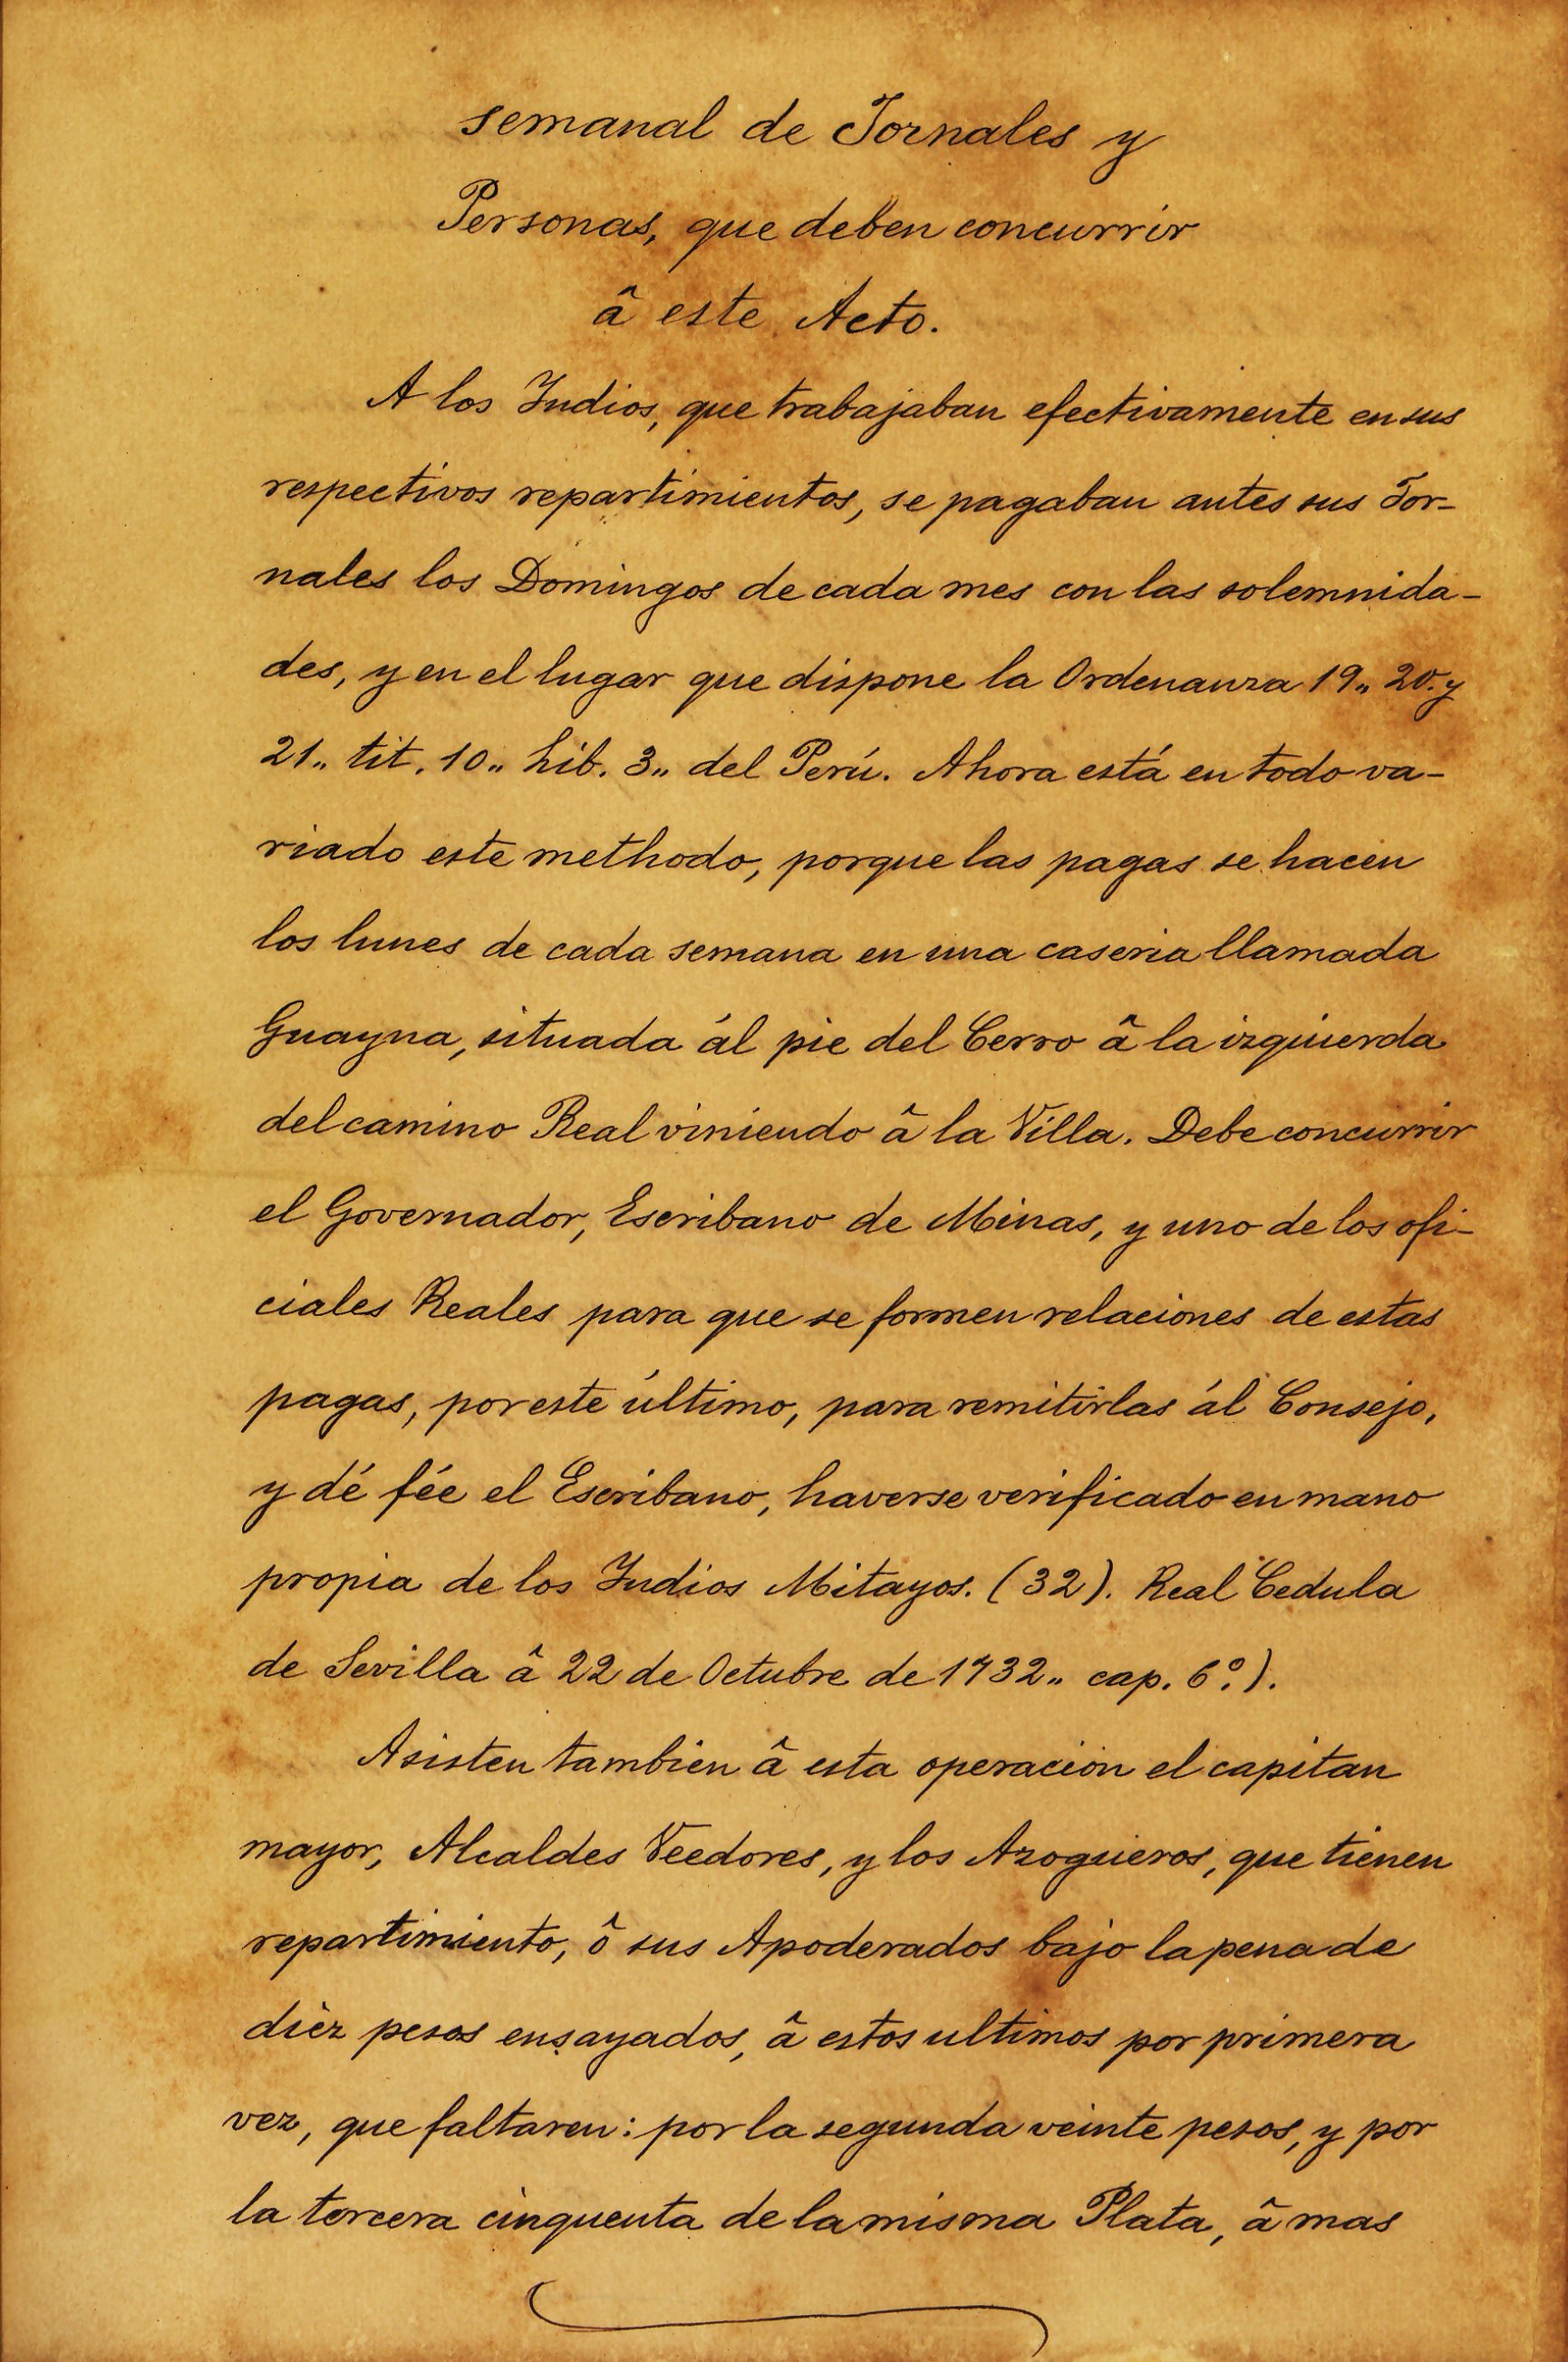 semanal de Jornales y
Personas, que deben concurrir
â este Acto.
A los Indios, que trabajaban efectivamente en sus
respectivos repartimientos, se pagaban antes sus Jor-
nales los Domingos de cada mes con las solemnida-
des, y en el lugar que dispone la Ordenanza 19„ 20. y
21„ tit. 10„ Lib. 3„ del Perú. Ahora está en todo va-
riado este methodo, porque las pagas se hacen
los lunes de cada semana en una caseria llamada
Guayna, situada ál pie del Cerro â la izquierda
del camino Real viniendo â la Villa. Debe concurrir
el Governador, Escribano de Minas, y uno de los ofi-
ciales Reales para que se formen relaciones de estas
pagas, por este último, para remitirlas ál Consejo,
y dé fée el Escribano, haverse verificado en mano
propia de los Indios Mitayos. (32). Real Cedula
de Sevilla â 22 de Octubre de 1732„ cap. 6º.).
Asisten tambien â esta operacion el capitan
mayor, Alcaldes Veedores, y los Azogueros, que tienen
repartimiento, ô sus Apoderados bajo la pena de
diez pesos ensayados, â estos ultimos por primera
vez, que faltaren: por la segunda veinte pesos, y por
la tercera cinquenta de la misma Plata, â mas